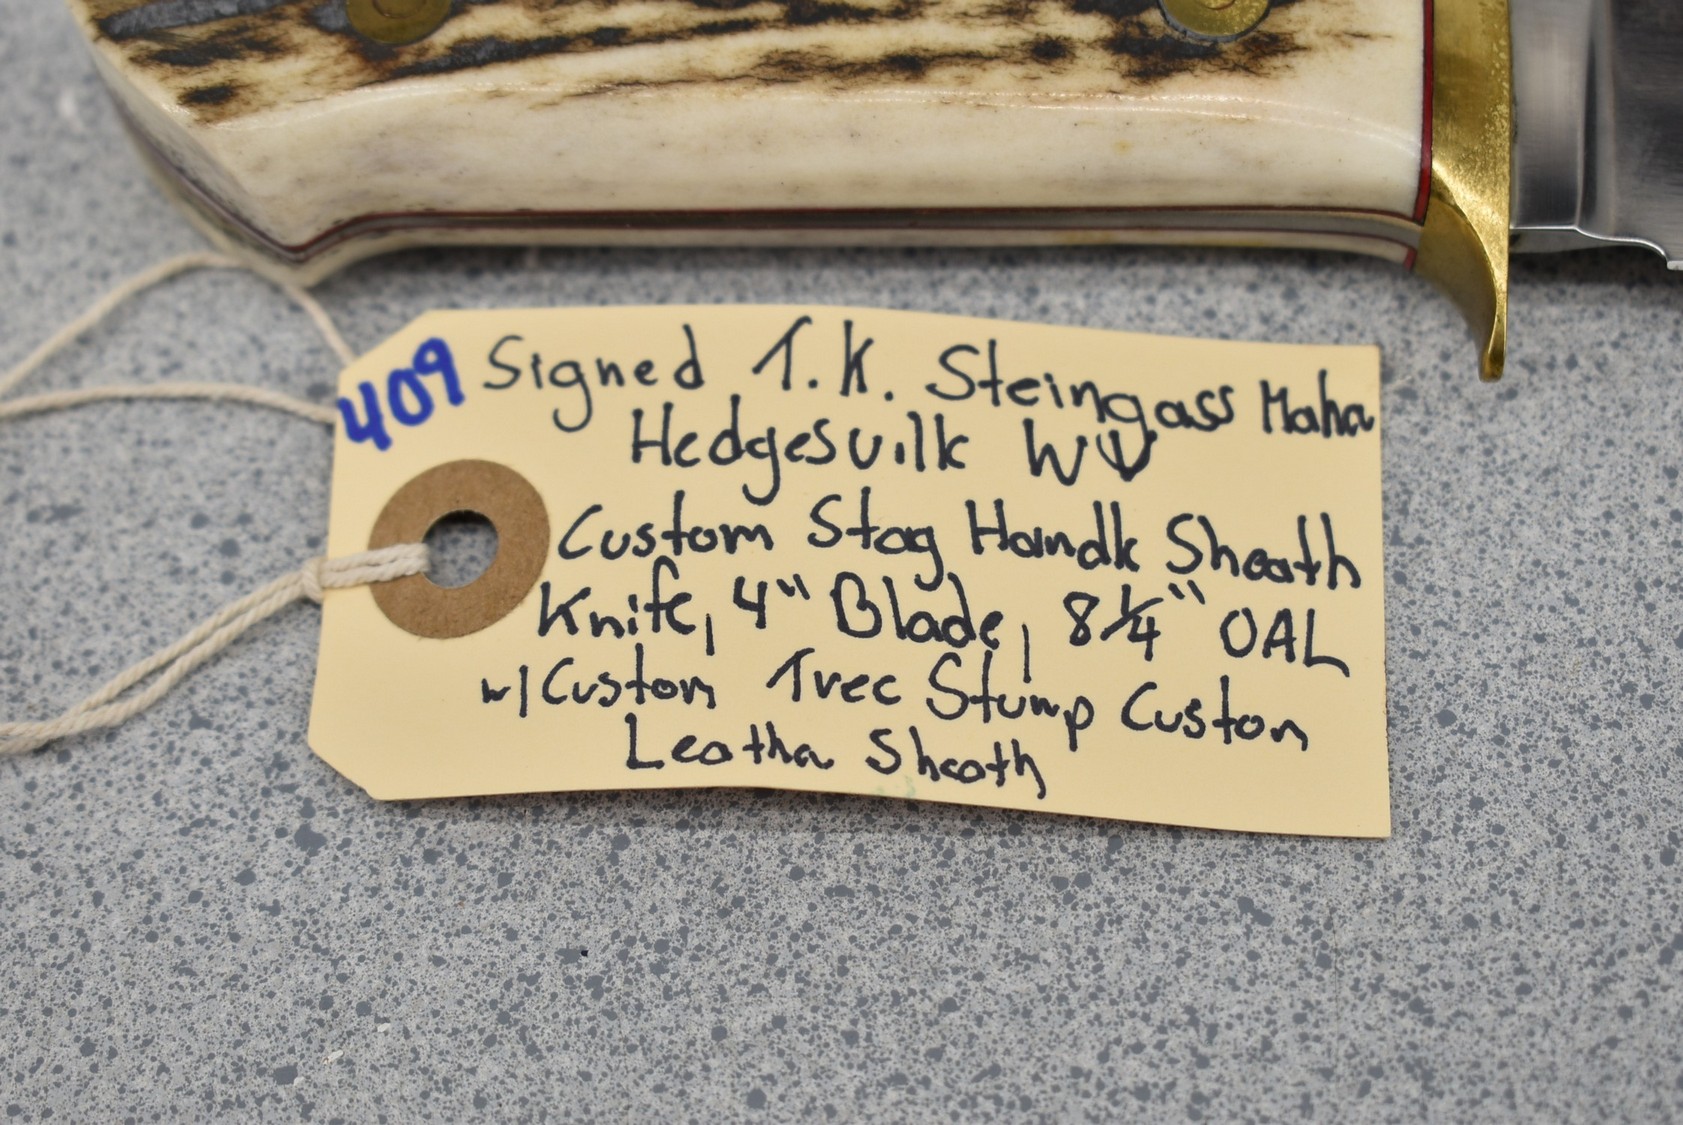 409
Signed T.K. Steingass Maker
Hedgesville WV
Custom Stag Handle Sheath
Knife, 4" Blade, 8 1/4" OAL
w/ Custom Tree Stump Custom
Leather Sheath